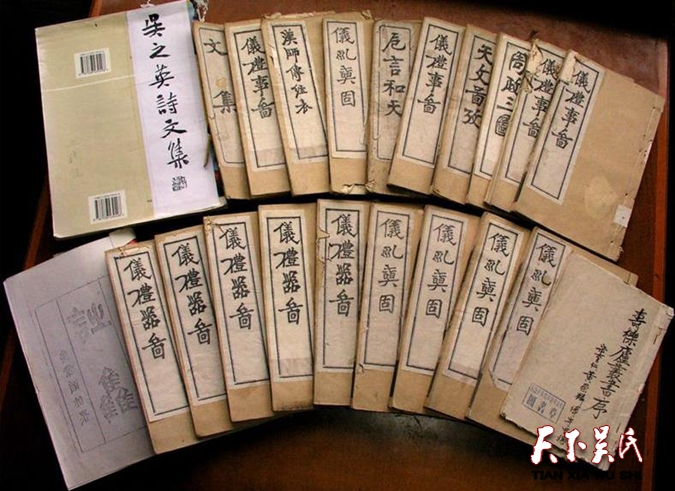 吳之英詩文集
文集
儀禮事啚
漢師傳經表
儀礼奭固
卮言和天
儀禮事啚
天文啚攷
周政三啚
儀禮事啚
儀禮事啚
儀禮器啚
儀禮器啚
儀禮器啚
儀禮器啚
儀禮器啚
儀礼奭固
儀礼奭固
儀礼奭固
儀礼奭固
壽櫟廬叢書序
圖書章
天下吳氏
TIAN XIA WU SHI